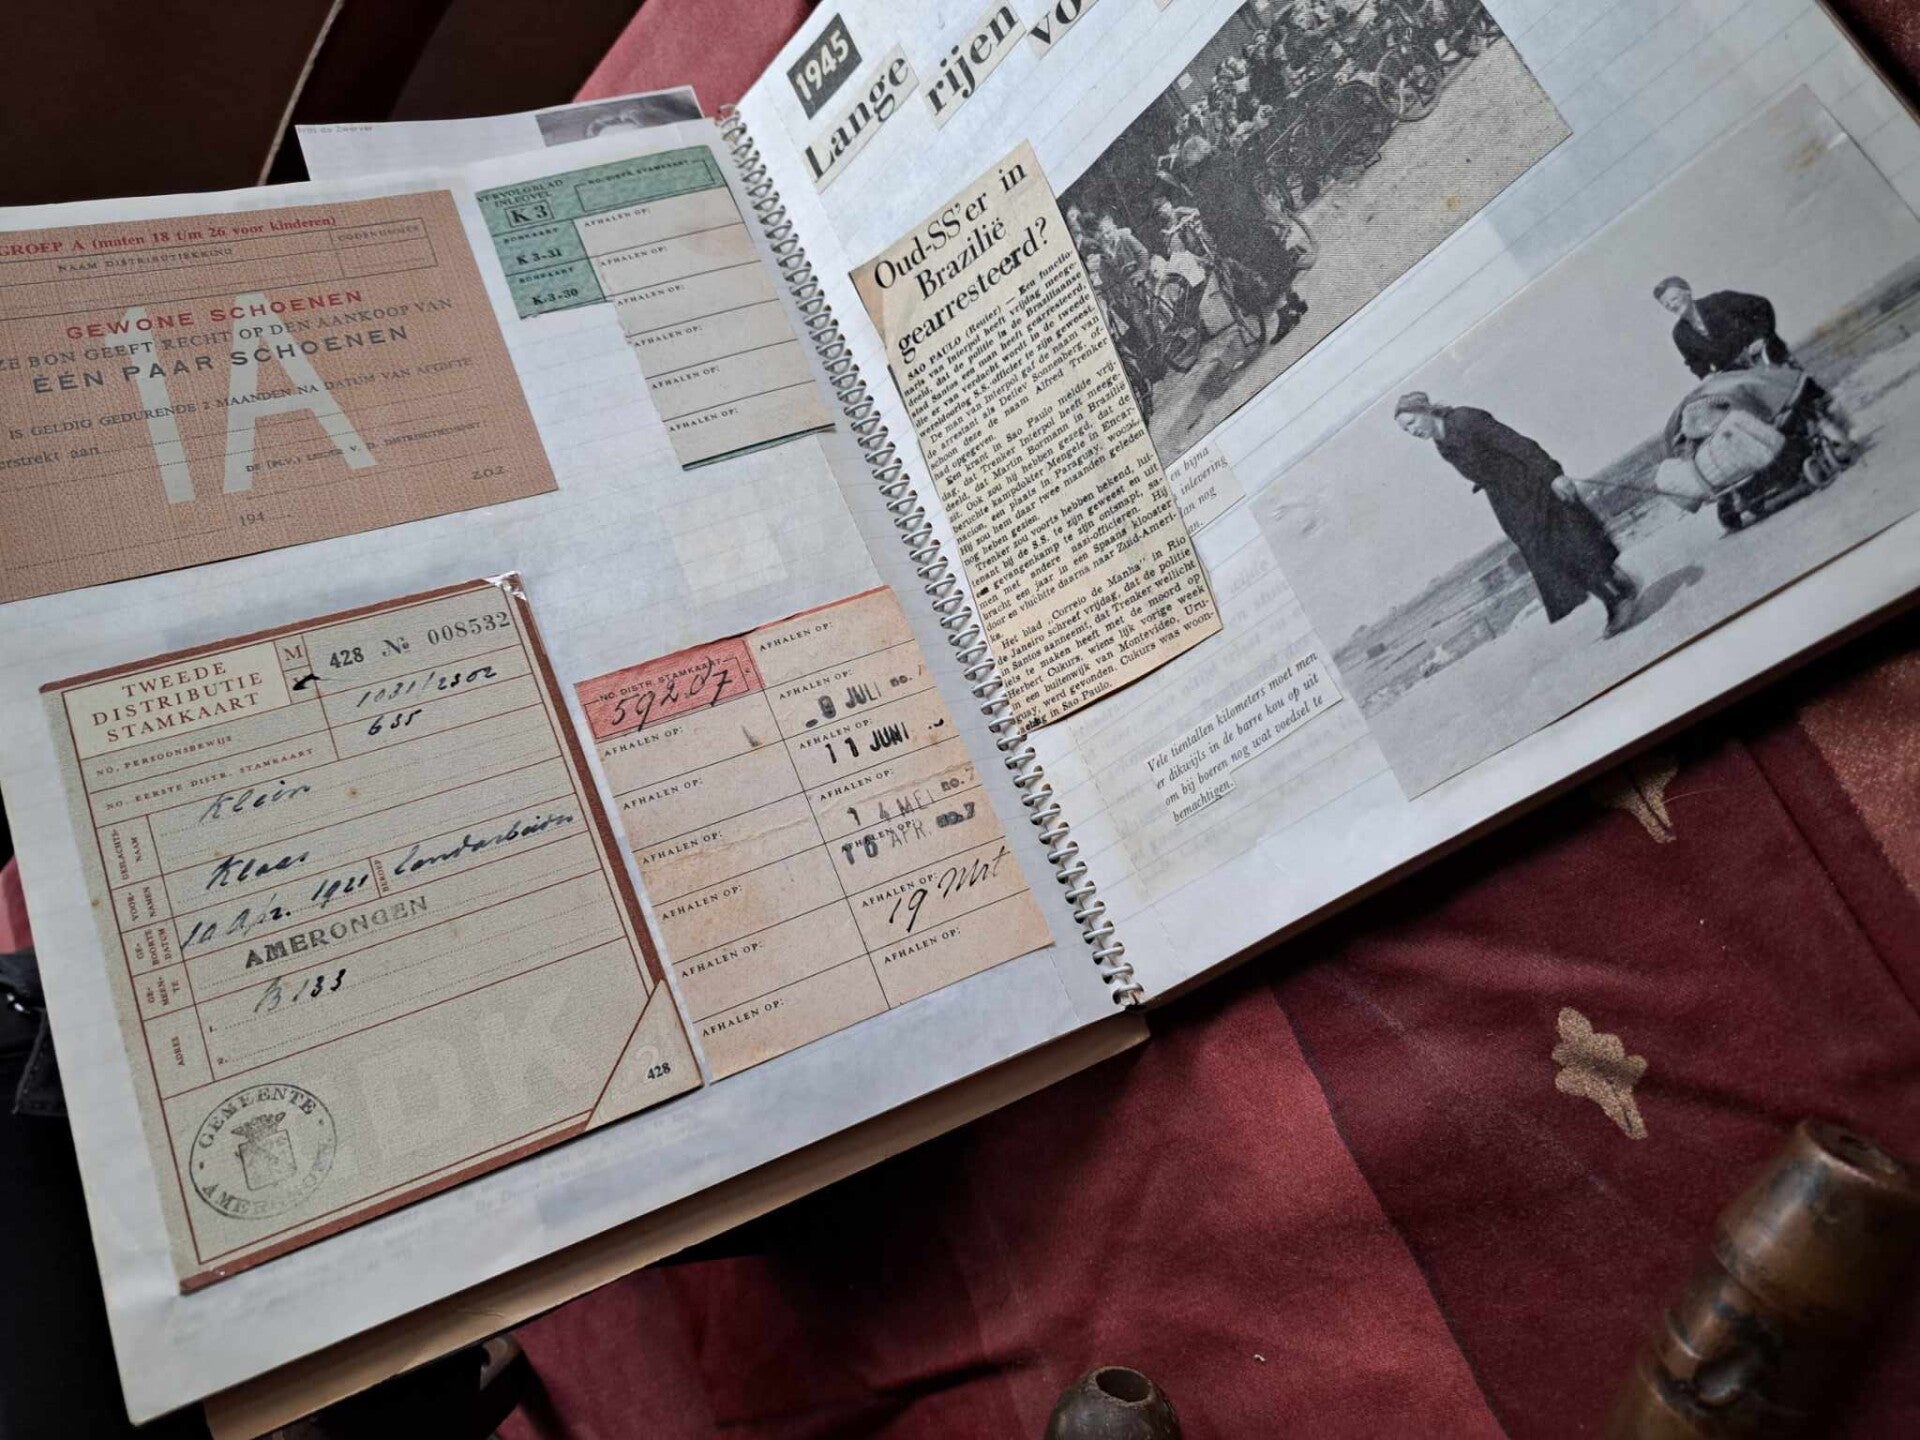 Frits de Zwerver
GROEP A (maten 18 t/m 26 voor kinderen)
NAAM DISTRIBUTIEKRING
CODENUMMER
1A
GEWONE SCHOENEN
ZE BON GEEFT RECHT OP DEN AANKOOP VAN
ÉÉN PAAR SCHOENEN
IS GELDIG GEDURENDE 2 MAANDEN NA DATUM VAN AFGIFTE
erstrekt aan
DE (PLV.) LEIDER V. D. DISTRIBUTIEDIENST
194
202
VERVOLGBLAD
INLEGVEL
K 3
NO. DISTR. STAMKAART
BONKAART
K 3-31
BONKAART
K 3-30
AFHALEN OP:
AFHALEN OP:
AFHALEN OP:
AFHALEN OP:
AFHALEN OP:
AFHALEN OP:
TWEEDE
DISTRIBUTIE
STAMKAART
M
428 No 008532
NO. PERSOONSBEWIJS
1031/2302
NO. EERSTE DISTR. STAMKAART
635
GESLACHTSNAAM
Klein
VOORNAMEN
Klaas
GEBOORTEDATUM
10 Apr. 1921
BEROEP
landarbeider
GEMEENTE
AMERONGEN
ADRES
1.
B 133
2.
GEMEENTE
AMERONGEN
428
NO. DISTR. STAMKAART
59207
AFHALEN OP:
AFHALEN OP:
AFHALEN OP:
AFHALEN OP:
AFHALEN OP:
AFHALEN OP:
AFHALEN OP:
AFHALEN OP:
-9 JULI no.
AFHALEN OP:
11 JUNI
AFHALEN OP:
14 MEI no.7
AFHALEN OP:
16 APR. no.7
AFHALEN OP:
19 Mrt
AFHALEN OP:
1945
Lange
rijen
vo
Oud-SS'er in
Brazilië
gearresteerd?
SAO PAULO (Reuter) — Een functio-
naris van Interpol heeft vrijdag meege-
deeld, dat de politie in de Braziliaanse
stad Santos een man heeft gearresteerd,
die er van verdacht wordt in de tweede
wereldoorlog S.S.-officier te zijn geweest.
De man van Interpol gaf de naam van
arrestant als Detlev Sonnenberg, of-
schoon deze de naam Alfred Trenker
had opgegeven.
Een krant in Sao Paulo meldde vrij-
dag, dat Interpol heeft meege-
deeld, dat Trenker in Brazilië
zit. Ook zou hij hebben gezegd, dat de
beruchte kampdokter Mengele in Encar-
nacion, een plaats in Paraguay, woont.
Hij zou hem daar twee maanden geleden
nog hebben gezien.
Trenker zou voorts hebben bekend, lui-
tenant bij de S.S. te zijn geweest en uit
een gevangenkamp te zijn ontsnapt, sa-
men met andere nazi-officieren. Hij
bracht een jaar in een Spaans klooster
door en vluchtte daarna naar Zuid-Ameri-
ka.
Het blad „Correio de Manha" in Rio
de Janeiro schreef vrijdag, dat de politie
in Santos aanneemt, dat Trenker wellicht
iets te maken heeft met de moord op
Herbert Cukurs, wiens lijk vorige week
in een buitenwijk van Montevideo, Uru-
guay, werd gevonden. Cukurs was woon-
achtig in Sao Paulo.
en bijna
inlevering
dan nog
Vele tientallen kilometers moest men
er dikwijls in de barre kou op uit
om bij boeren nog wat voedsel te
bemachtigen.